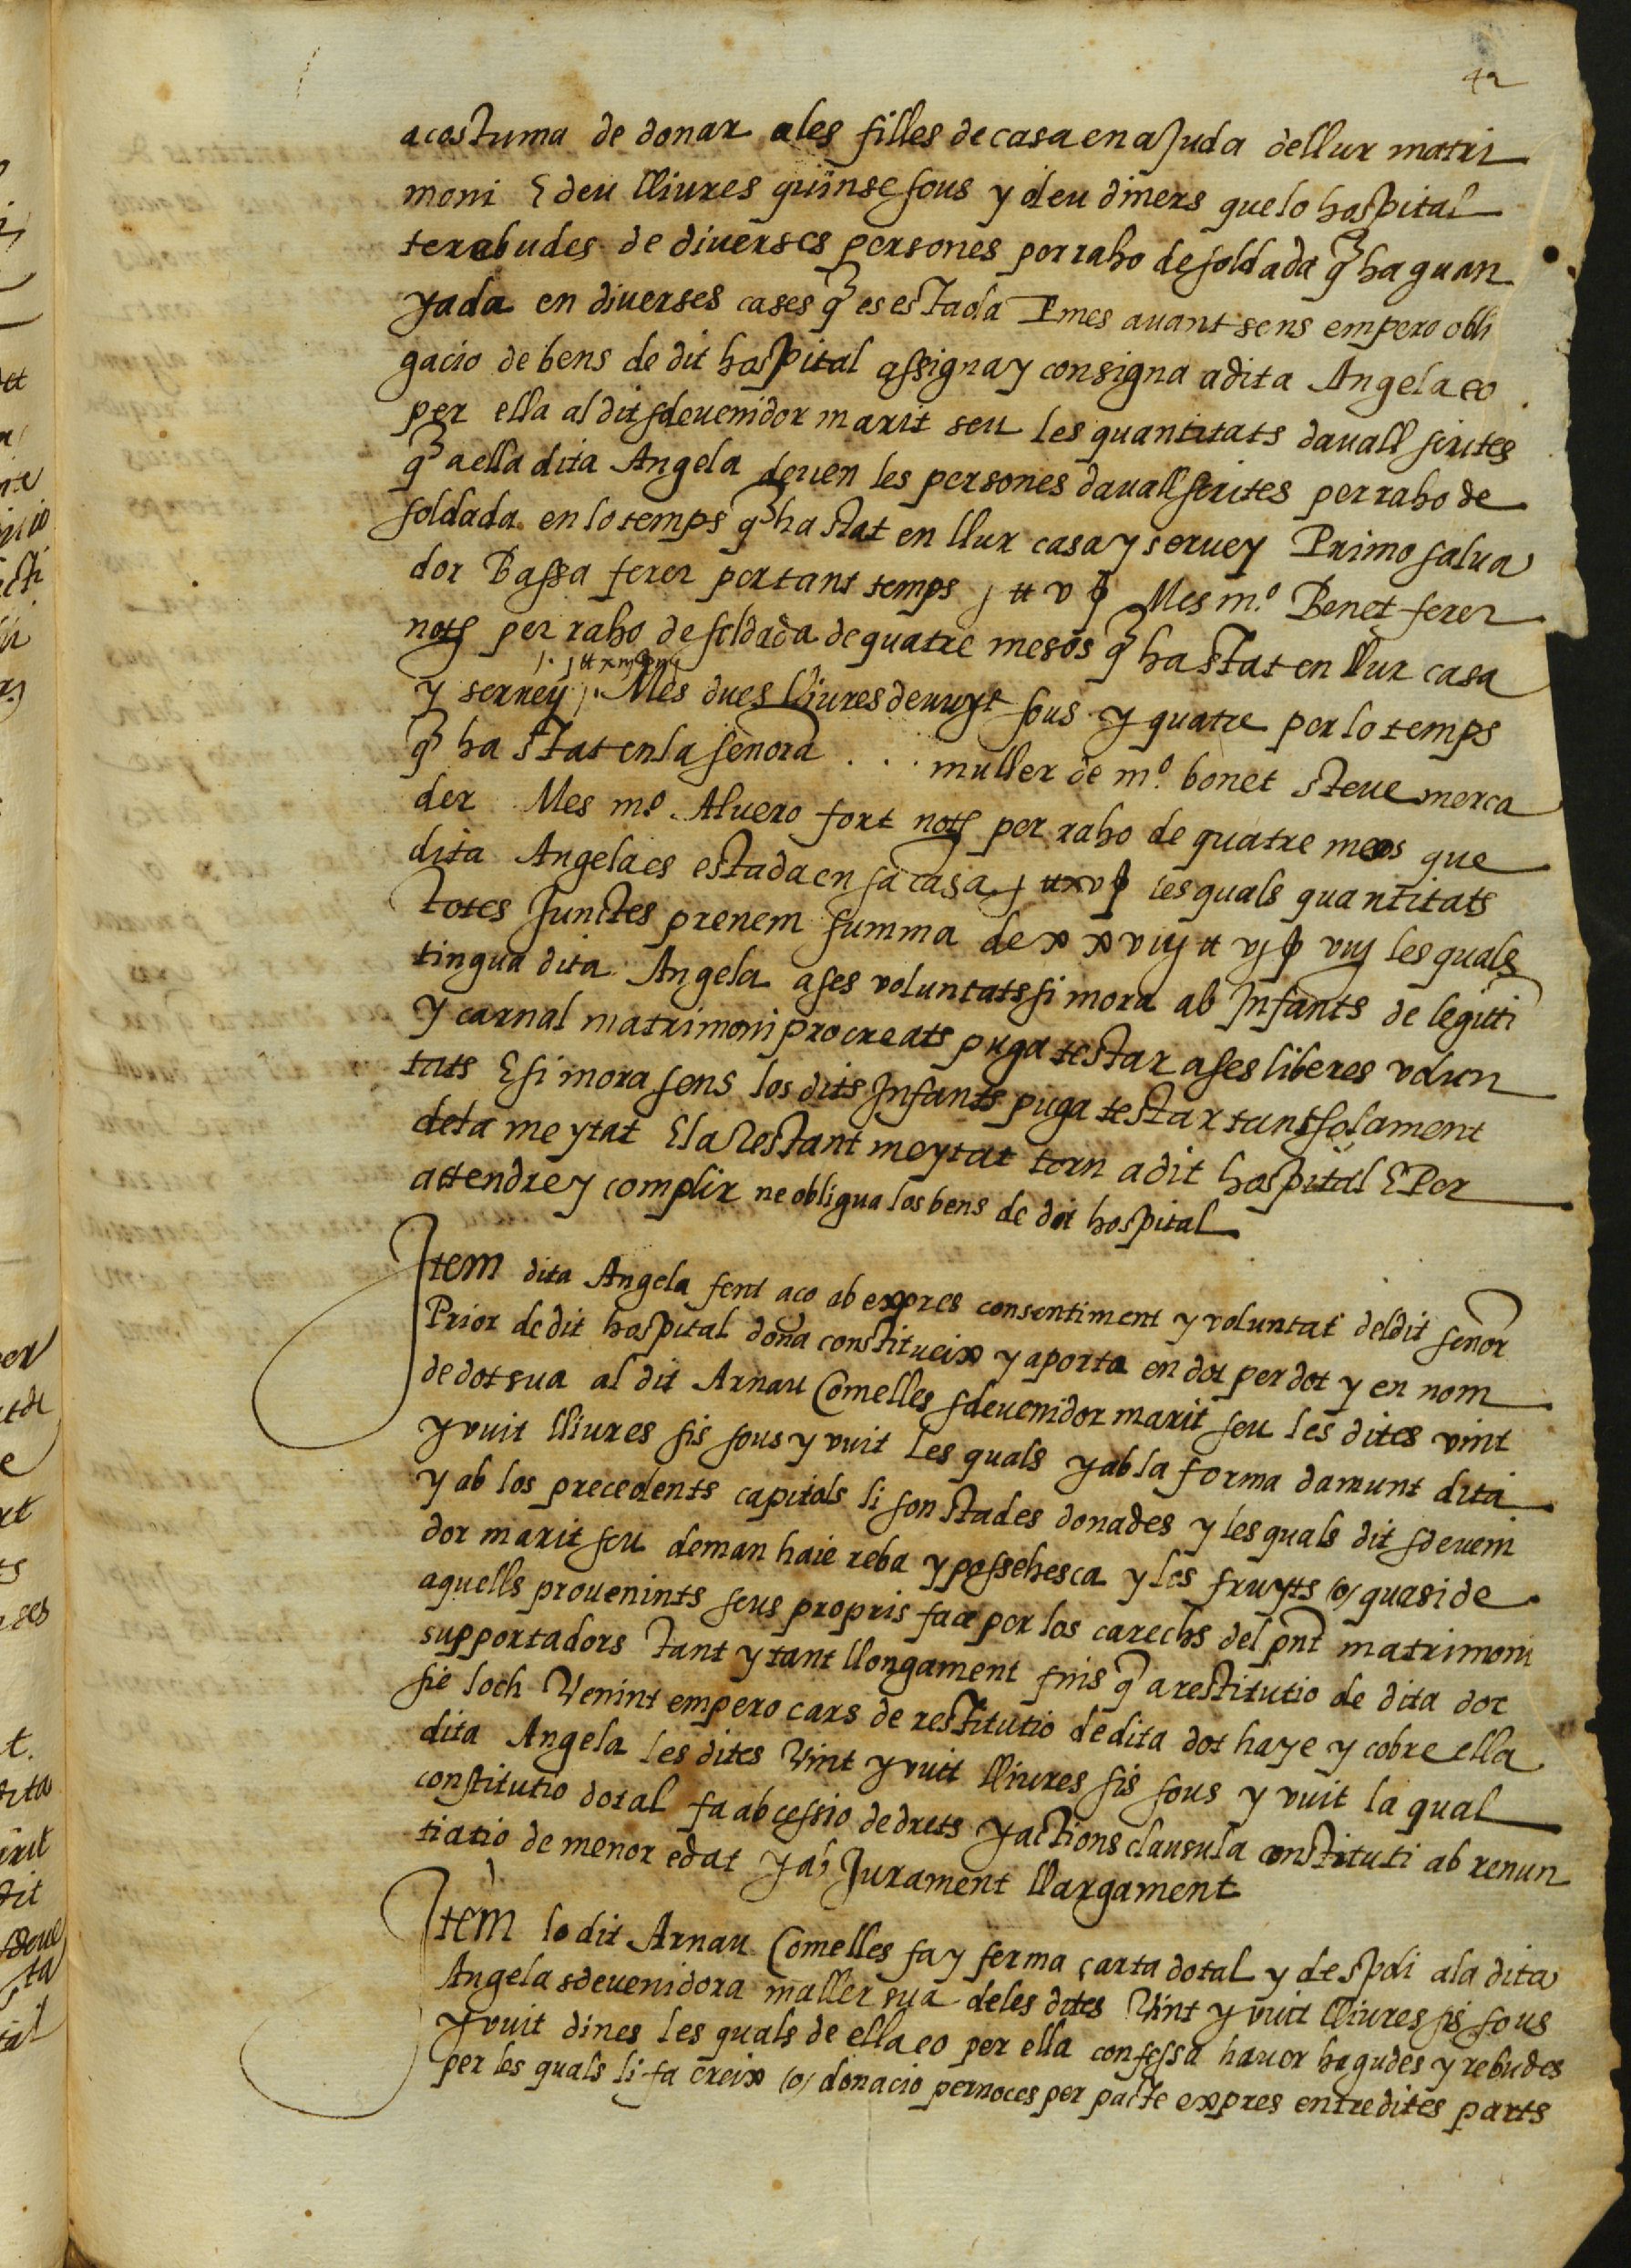 42
acostuma de donar ales filles de casa en aJuda de llur matri
moni E deu lliures quinse sous y deu diners que lo hospital
te rebudes de diverses persones per raho de soldada q̃ ha guan
yada en diverses cases q̃ es estada E mes avant sens empero obli
gacio de bens de dit hospital assigna y consigna a dita Angela eo
per ella al dit sdevenidor marit seu les quantitats davall scrites
q̃ a ella dita Angela deven les persones davall scrites per raho de
soldada en lo temps q̃ ha stat en llur casa y servey Primo salva
dor Bassa ferer per tant temps j ₶ v ꝭ Mes m.º Benet ferer
notꝭ per raho de soldada de quatre mesos q̃ ha stat en llur casa
y servey Mes dues lliures devuyt sous y quatre per lo temps
q̃ ha stat en la senora . . . muller de m.º bonet steve merca
der Mes m.º Alvero fort notꝭ per raho de quatre mesos que
dita Angela es estada en sa casa j ₶ xv ꝭ les quals quantitats
totes Junctes prenem summa de xxviij ₶ vj ꝭ viij les quals
tingua dita Angela a ses voluntats si mora ab Infants de legitti
y carnal matrimoni procreats puga testar a ses liberes volun
tats E si mora sens los dits Infants puga testar tant solament
dela meytat E la Restant meytat torn a dit hospital E Per
attendre y complir ne obligua los bens de dit hospital
Item dita Angela fent aço ab expres consentiment y voluntat del dit senor
Prior de dit hospital dona constitueix y aporta en dot per dot y en nom
de dot sua al dit Arnau Comelles sdevenidor marit seu les dites vint
y vuit lliures sis sous y vuit les quals y ab la forma damunt dita
y ab los precedents capitols li son stades donades y les quals dit sdeveni
dor marit seu deman haie reba y possehesca y los fruyts (o) quasi de
aquells provenints seus propris face per los carechs del pñt matrimoni
supportadors tant y tant llongament fins q̃ a restitutio de dita dot
sie loch Venint empero cars de restitutio de dita dot haye y cobre ella
dita Angela les dites Vint y vuit lliures sis sous y vuit la qual
constitutio dotal fa ab cessio de drets y actions clausula constituti ab renun
tiatio de menor edat y ab Jurament llargament
Item lo dit Arnau Comelles fa y ferma carta dotal y de spoli ala dita
Angela sdevenidora muller sua deles dites Vint y vuit lliures sis sous
y vuit dines les quals de ella eo per ella confessa haver hagudes y rebudes
per les quals li fa creix (o) donacio per noces per pacte expres entre dites parts